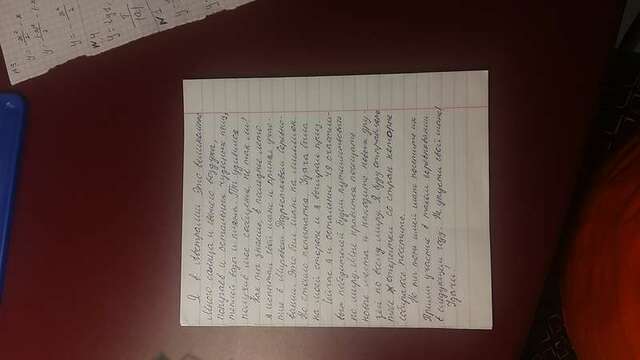 Я в Австралии Это великолепно
Много солнца и свежего воздуха,
попугаев и остальных чудесных птиц,
теплой воды и пляжа. Ты удивился
получив мое сообщение, не так ли?
Как ты знаешь, в последнее лето
я испытал свой шанс и принял учас-
тие в Мировом Подростковом Соревно-
вании. Это был шанс на миллион.
Но стоило попытаться. Удача была
на моей стороне и я выиграл приз.
Сейчас я и остальные 49 счастли-
вых победителей будем путешествовать
по миру. Мне нравится посещать
новые места и находить новых дру-
зей по всему миру. Я буду отправлять
тебе открытки со стран которые
собираюсь посетить.
Но ты тоже имей шанс посетить их
Прими участие в таком соревновании
в следующем году. Не упусти свой шанс!
Удачи!
№3
y =
y =
y =
№4